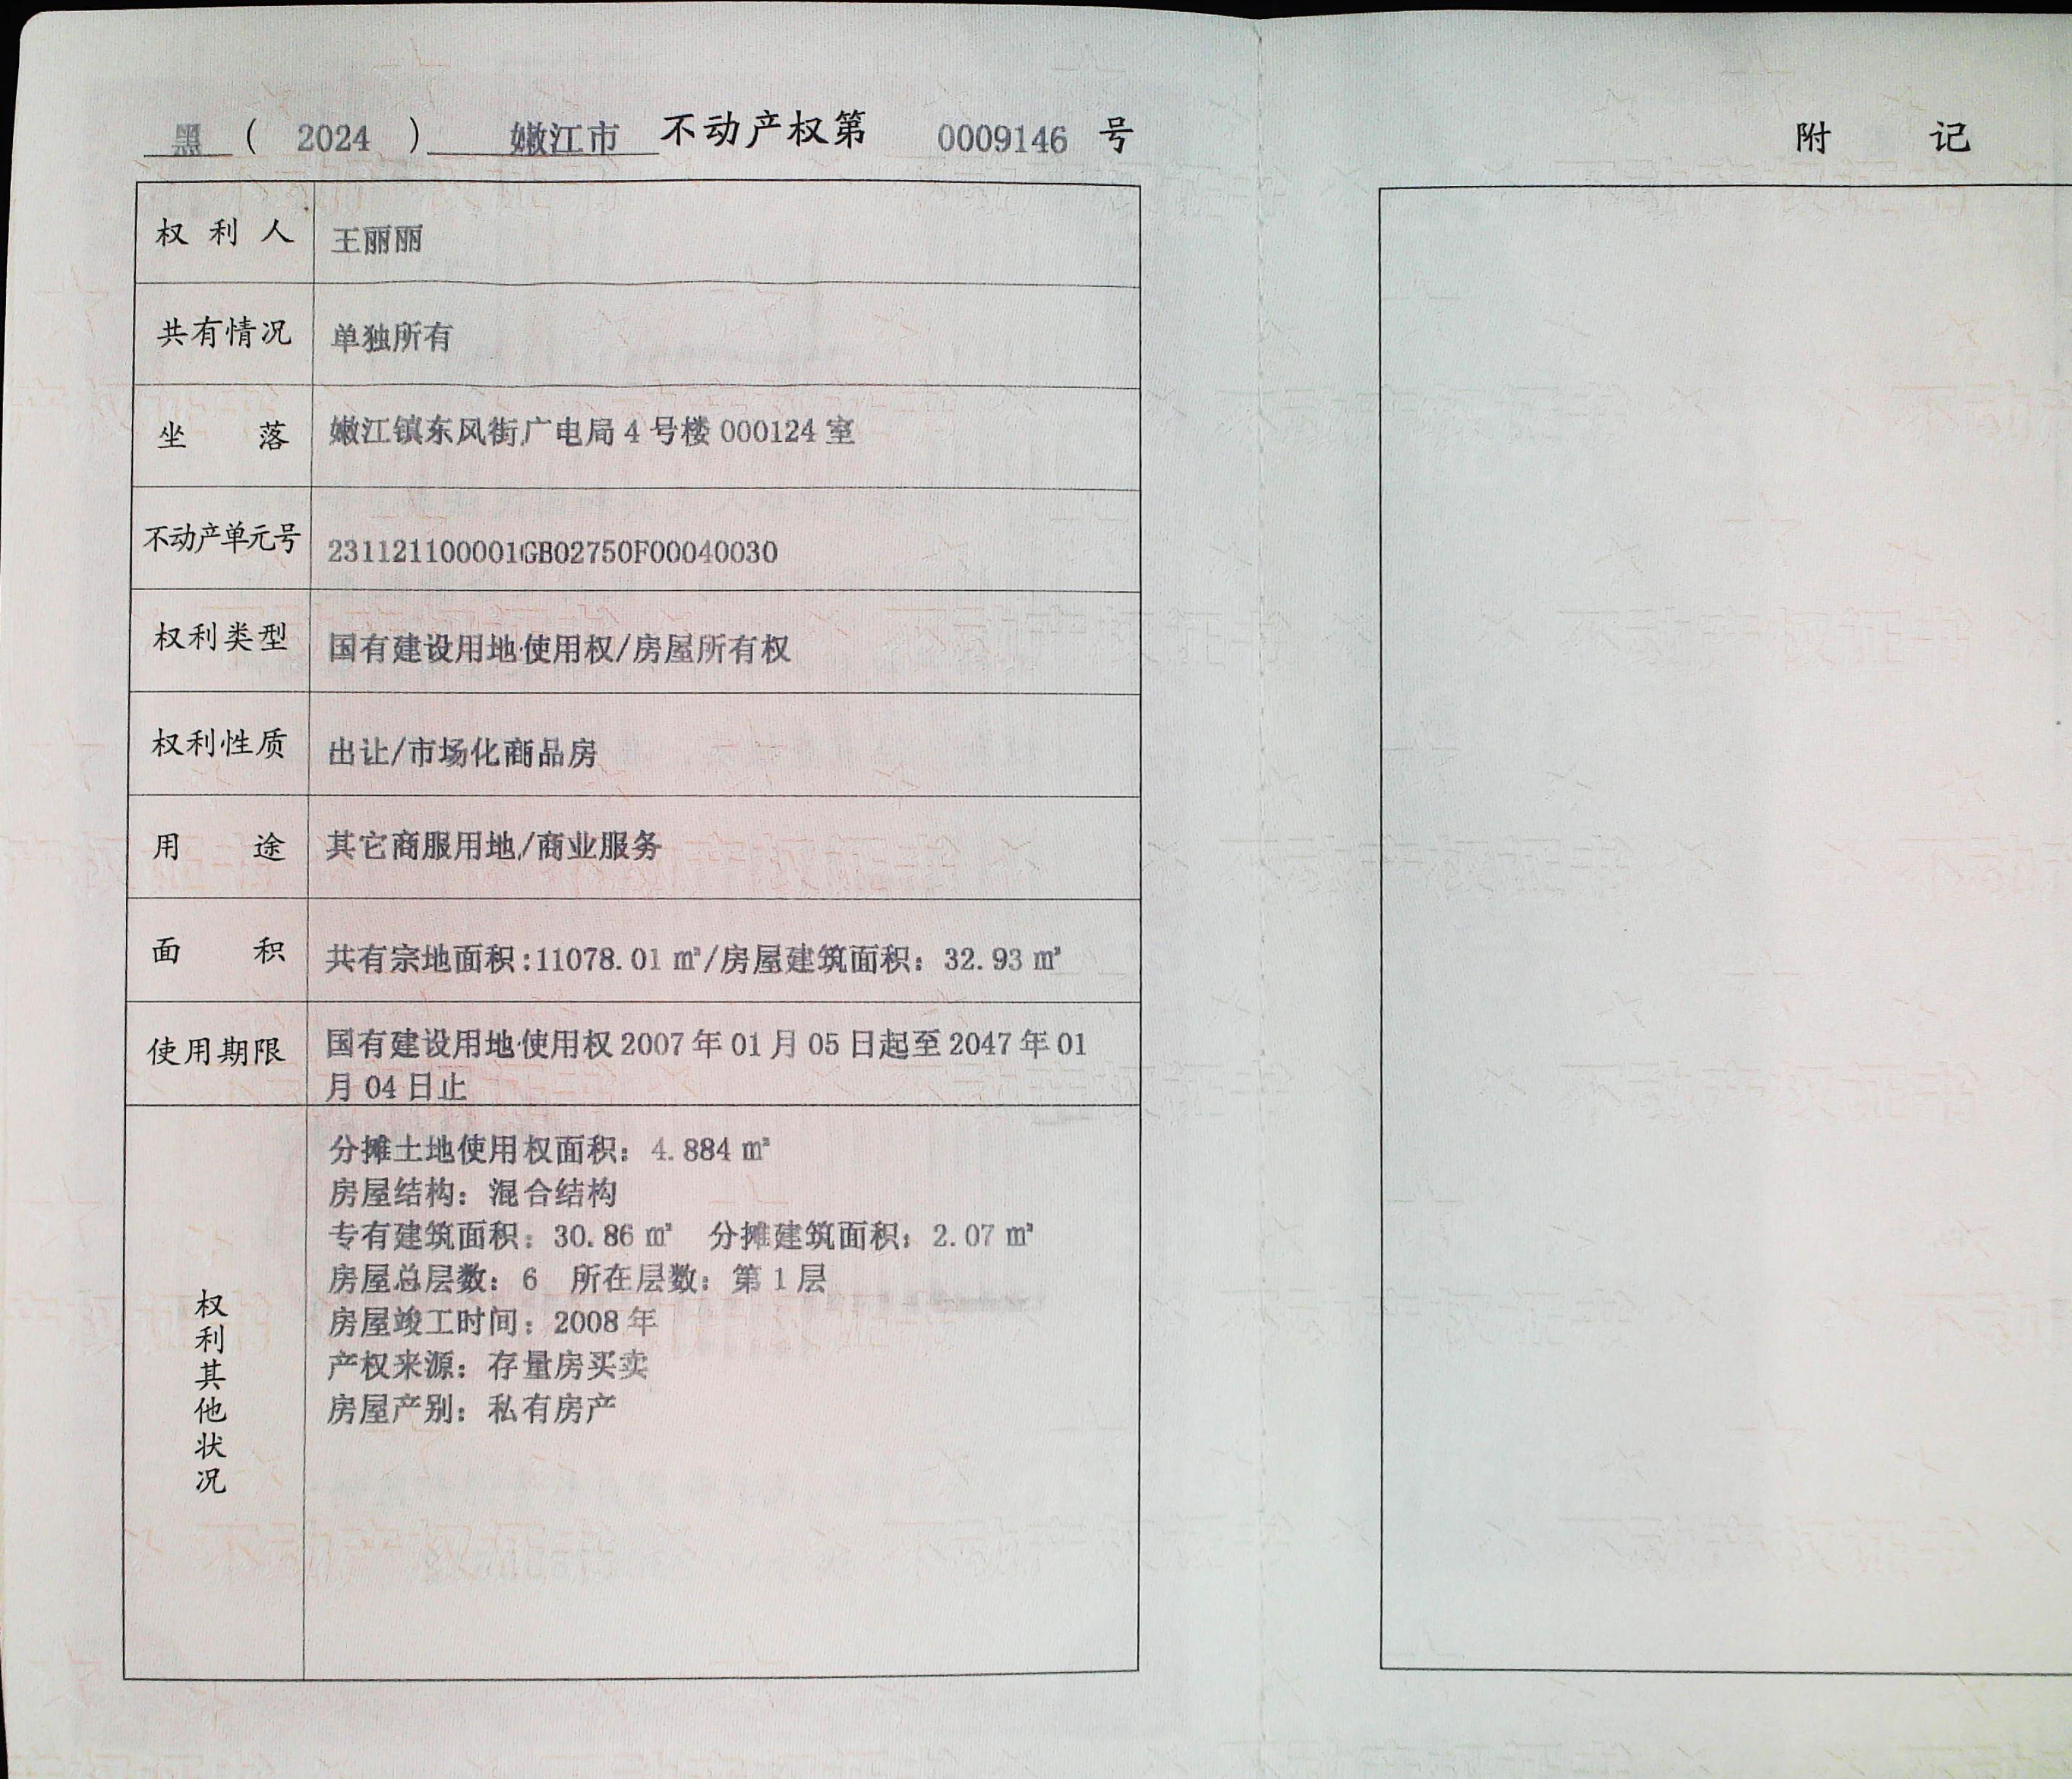 黑 ( 2024 ) 嫩江市 不动产权第 0009146 号
权利人 王丽丽
共有情况 单独所有
坐落 嫩江镇东风街广电局 4 号楼 000124 室
不动产单元号 231121100001GB02750F00040030
权利类型 国有建设用地使用权/房屋所有权
权利性质 出让/市场化商品房
用途 其它商服用地/商业服务
面积 共有宗地面积:11078.01 ㎡/房屋建筑面积：32.93 ㎡
使用期限 国有建设用地使用权 2007 年 01 月 05 日起至 2047 年 01
月 04 日止
权利其他状况
分摊土地使用权面积：4.884 ㎡
房屋结构：混合结构
专有建筑面积：30.86 ㎡ 分摊建筑面积：2.07 ㎡
房屋总层数：6 所在层数：第 1 层
房屋竣工时间：2008 年
产权来源：存量房买卖
房屋产别：私有房产
附记